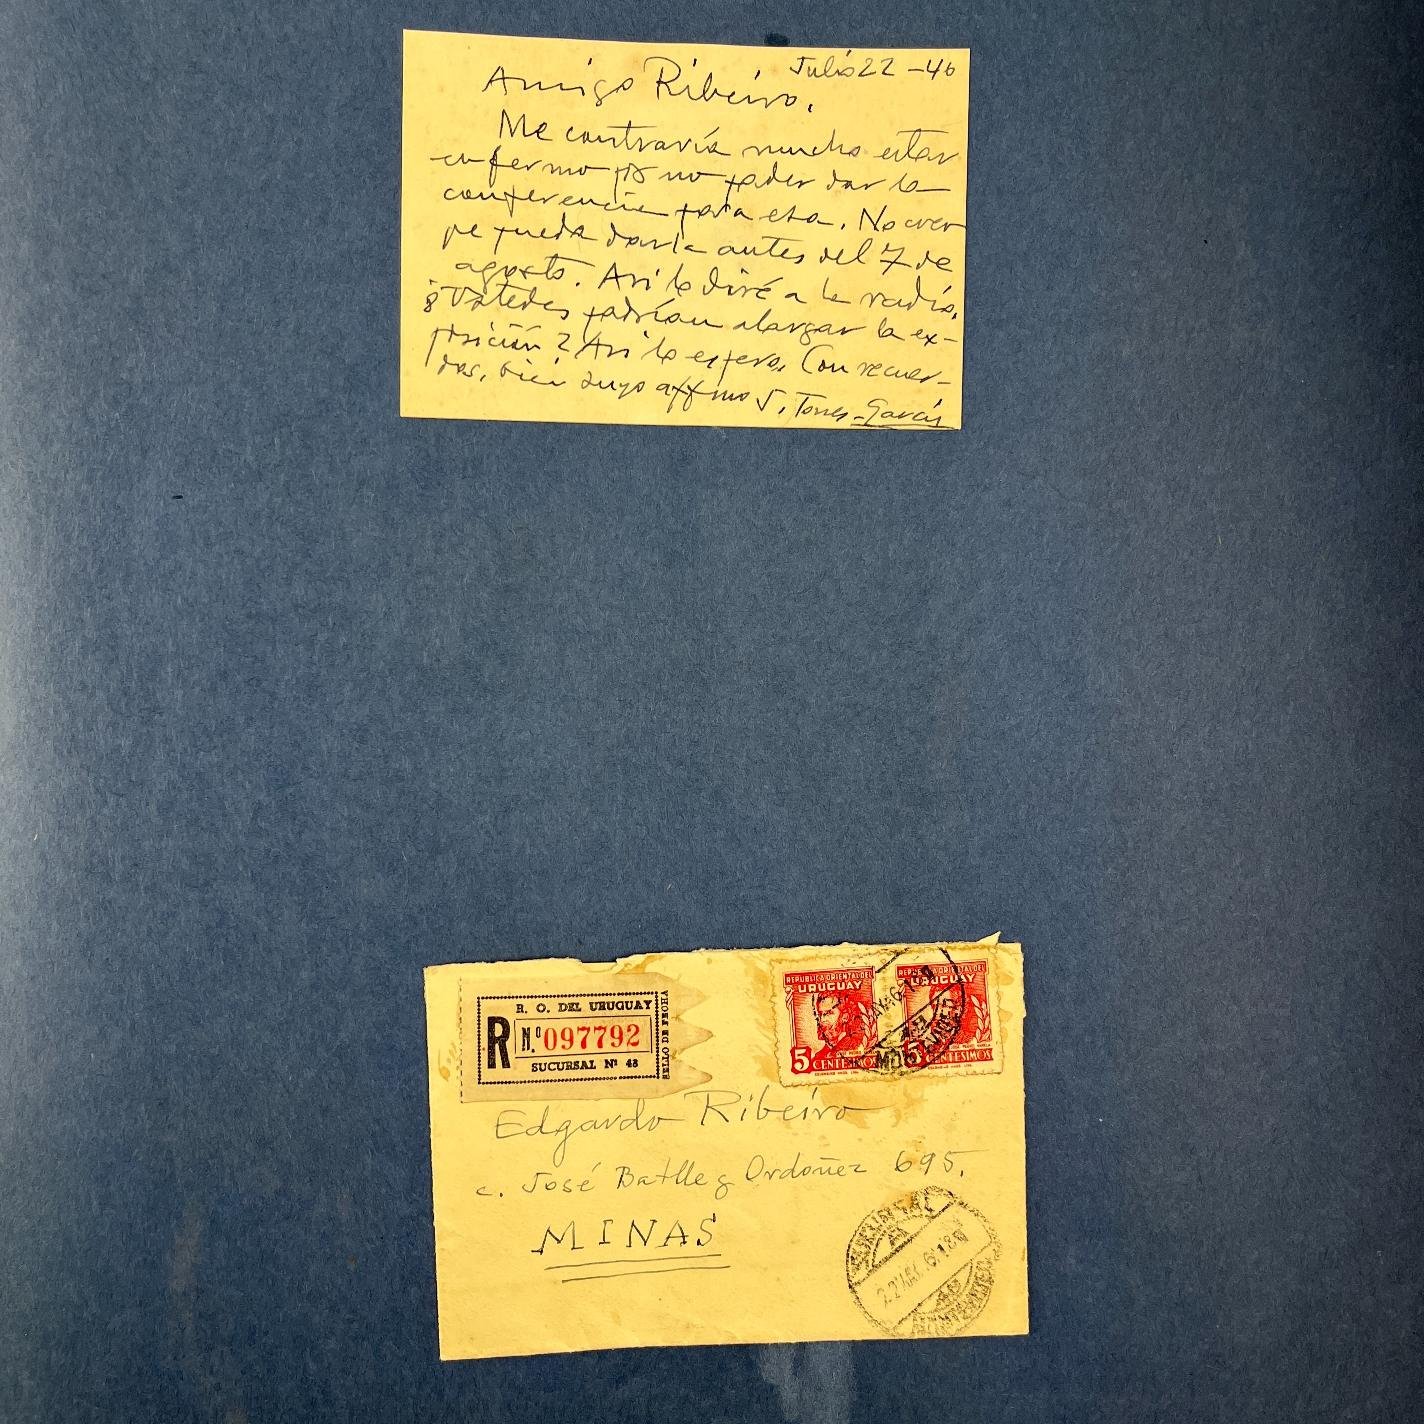 Julio 22 - 46
Amigo Ribeiro.
Me contraría mucho estar
enfermo y no poder dar la
conferencia para esa. No creo
pueda darla antes del 7 de
agosto. Asi lo diré a la radio.
Ustedes podrían alargar la ex-
posición? Asi lo espero. Con recuer-
dos, bien suyo affmo J. Torres-García
R. O. DEL URUGUAY
R N.º 097792
SUCURSAL Nº 48
SELLO DE FECHA
REPUBLICA ORIENTAL DEL
URUGUAY
5 CENTESIMOS
REPUBLICA ORIENTAL DEL
URUGUAY
5 CENTESIMOS
MONTEVIDEO
Edgardo Ribeiro
c. José Batlle y Ordoñez 695.
MINAS